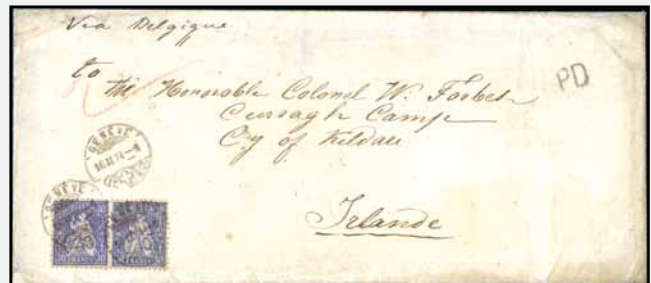 Via Delgique
to
The Honorable Colonel W. Forbes
Curragh Camp
Cy of Kildare
Irlande
PD
GENEVE
16 XI 74
GENEVE
FRANCO